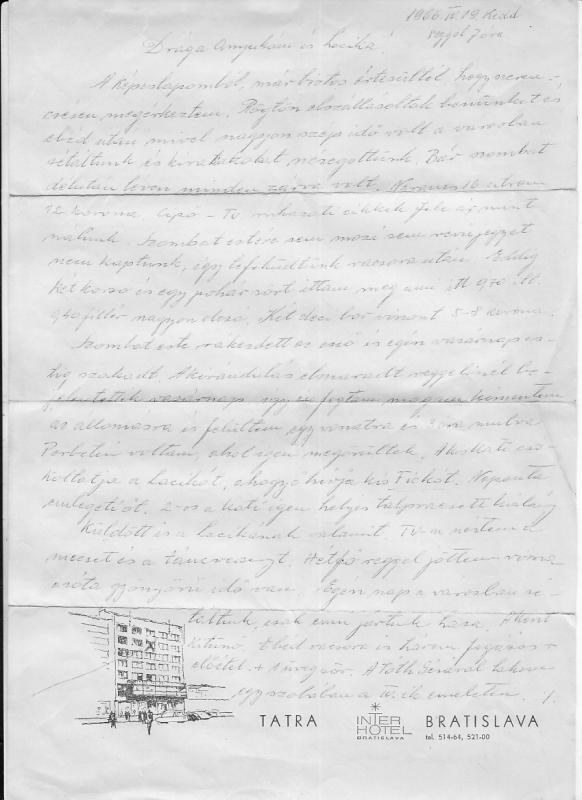 1966. IV. 19. Kedd
reggel 7 óra
Drága Anyukám és Lacika!
A képeslapomból, már biztos értesültél, hogy szeren-
csésen megérkeztem. Rögtön elszállásoltak bennünket és
ebéd után mivel nagyon szép idő volt a városban
sétáltunk és kirakatokat nézegettünk. Bár szombat
délután lévén minden zárva volt.
12 korona. Cipő - Tv. ruházati cikkek fele ár mint
nálunk. Szombat estére sem mozi sem revüjegyet
nem kaptunk, így lefeküdtünk vacsora után. Eddig
két korsó és egy pohár sört ittam meg ami itt
940 fillér nagyon olcsó. Két deci bor viszont 5-8 korona.
Szombat este rákezdett az eső és egész vasárnap es-
tig szakadt. A kirándulás elmaradt reggelinél be-
jelentették vasárnap, úgy fogtam magam kimentem
az állomásra és felültem egy vonatra és 3 óra mulva
voltam, ahol igen megörültek. A kis Kati cso-
koltatja a Lacikát, ahogy ő hívja kis Fickót. Naponta
emlegeti őt. 2-os a Kati igen helyes talpraesett kislány
Küldött is a Lacikának valamit. TV-n néztem a
meccset és a táncversenyt. Hétfő reggel jöttem vissza
azóta gyönyörű idő van. Egész nap a városban sé-
táltunk, csak enni jártunk haza. A koszt
kitűnő. Ebéd vacsora is három fogásos +
előétel + 1 üveg sör. A Tóth Gézával lakom
egy szobában a IV. ik emeleten. 1.
TATRA INTER HOTEL BRATISLAVA BRATISLAVA
tel. 514-64, 521-00